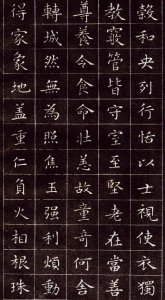 穀和央列行恬以士世使衣獨
教竄管皆守室至堅老在當善
尊養令食命壯恙故童奇何舍
轉城然無為照焦玉强利煩動
得家象地蓋重仁負火相根珠